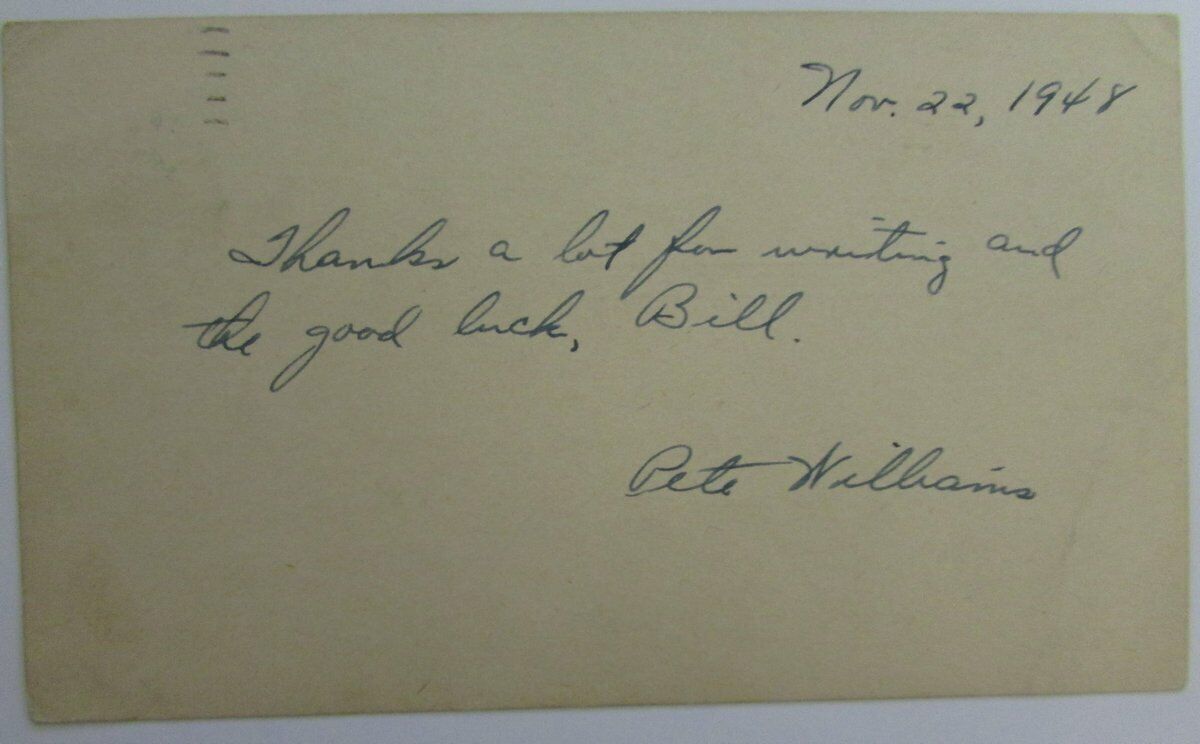 Nov. 22, 1948
Thanks a lot for writing and
the good luck, Bill.
Pete Williams